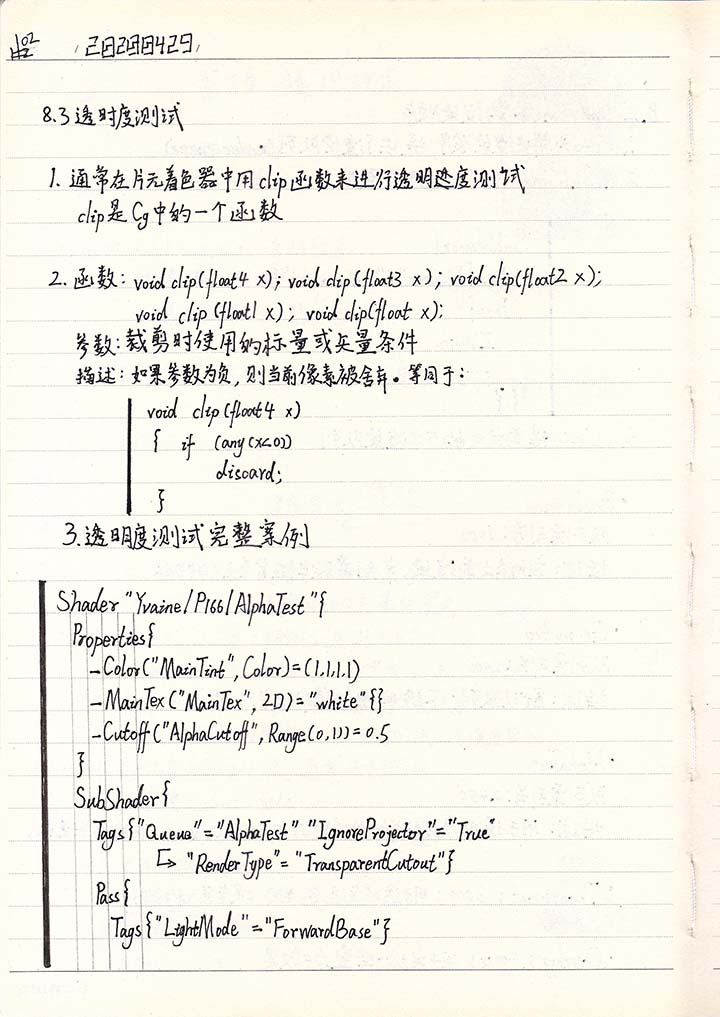 02 20200429
8.3 透时度测试
1. 通常在片元着色器中用clip函数来进行透明度测试
clip是Cg中的一个函数
2. 函数: void clip(float4 x); void clip(float3 x); void clip(float2 x);
void clip (float1 x); void clip(float x);
参数: 裁剪时使用的标量或矢量条件
描述: 如果参数为负, 则当前像素被舍弃。等同于:
void clip(float4 x)
{ if (any(x<0))
discard;
}
3. 透明度测试完整案例
Shader "Yvaine/P166/AlphaTest"{
Properties{
_Color("MainTint", Color)=(1,1,1,1)
_MainTex("MainTex", 2D)="white"{}
_Cutoff("AlphaCutoff", Range(0,1))=0.5
}
SubShader{
Tags{"Queue"="AlphaTest" "IgnoreProjector"="True"
"RenderType"="TransparentCutout"}
Pass{
Tags{"LightMode"="ForwardBase"}